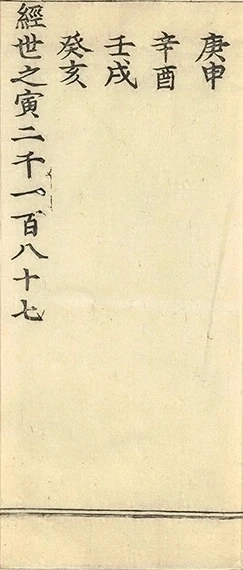 庚申
辛酉
壬戌
癸亥
經世之寅二千一百八十七